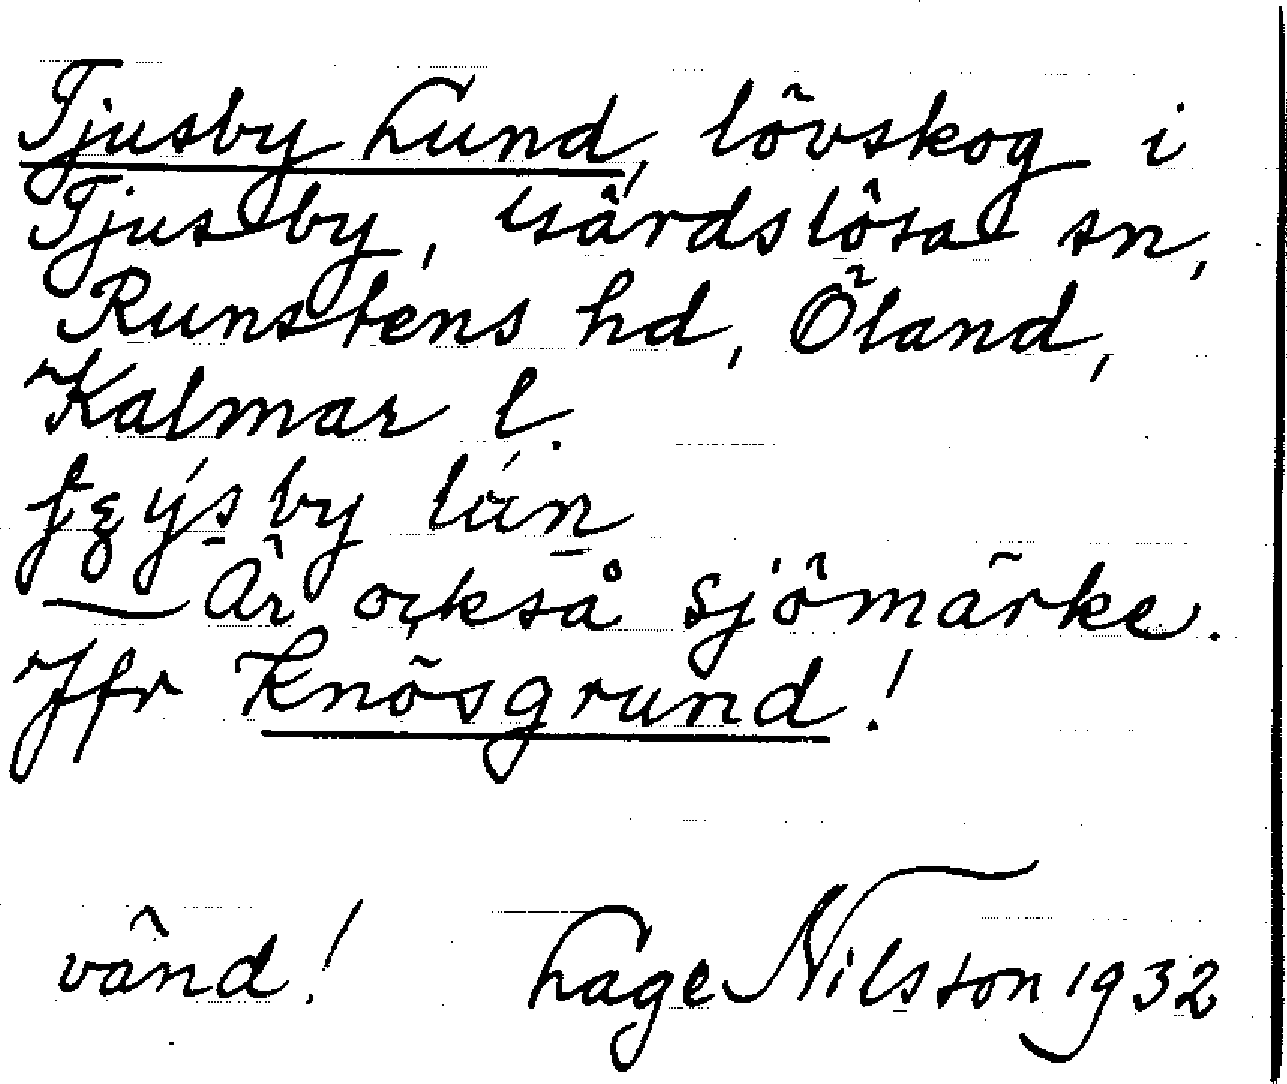 Tjusby Lund, lövskog i
Tjusby, Gärdslösa sn,
Runstens hd, Öland,
Kalmar l.
by
Är också sjömärke.
Jfr Knösgrund!
vänd! Lage Nilsson 1932